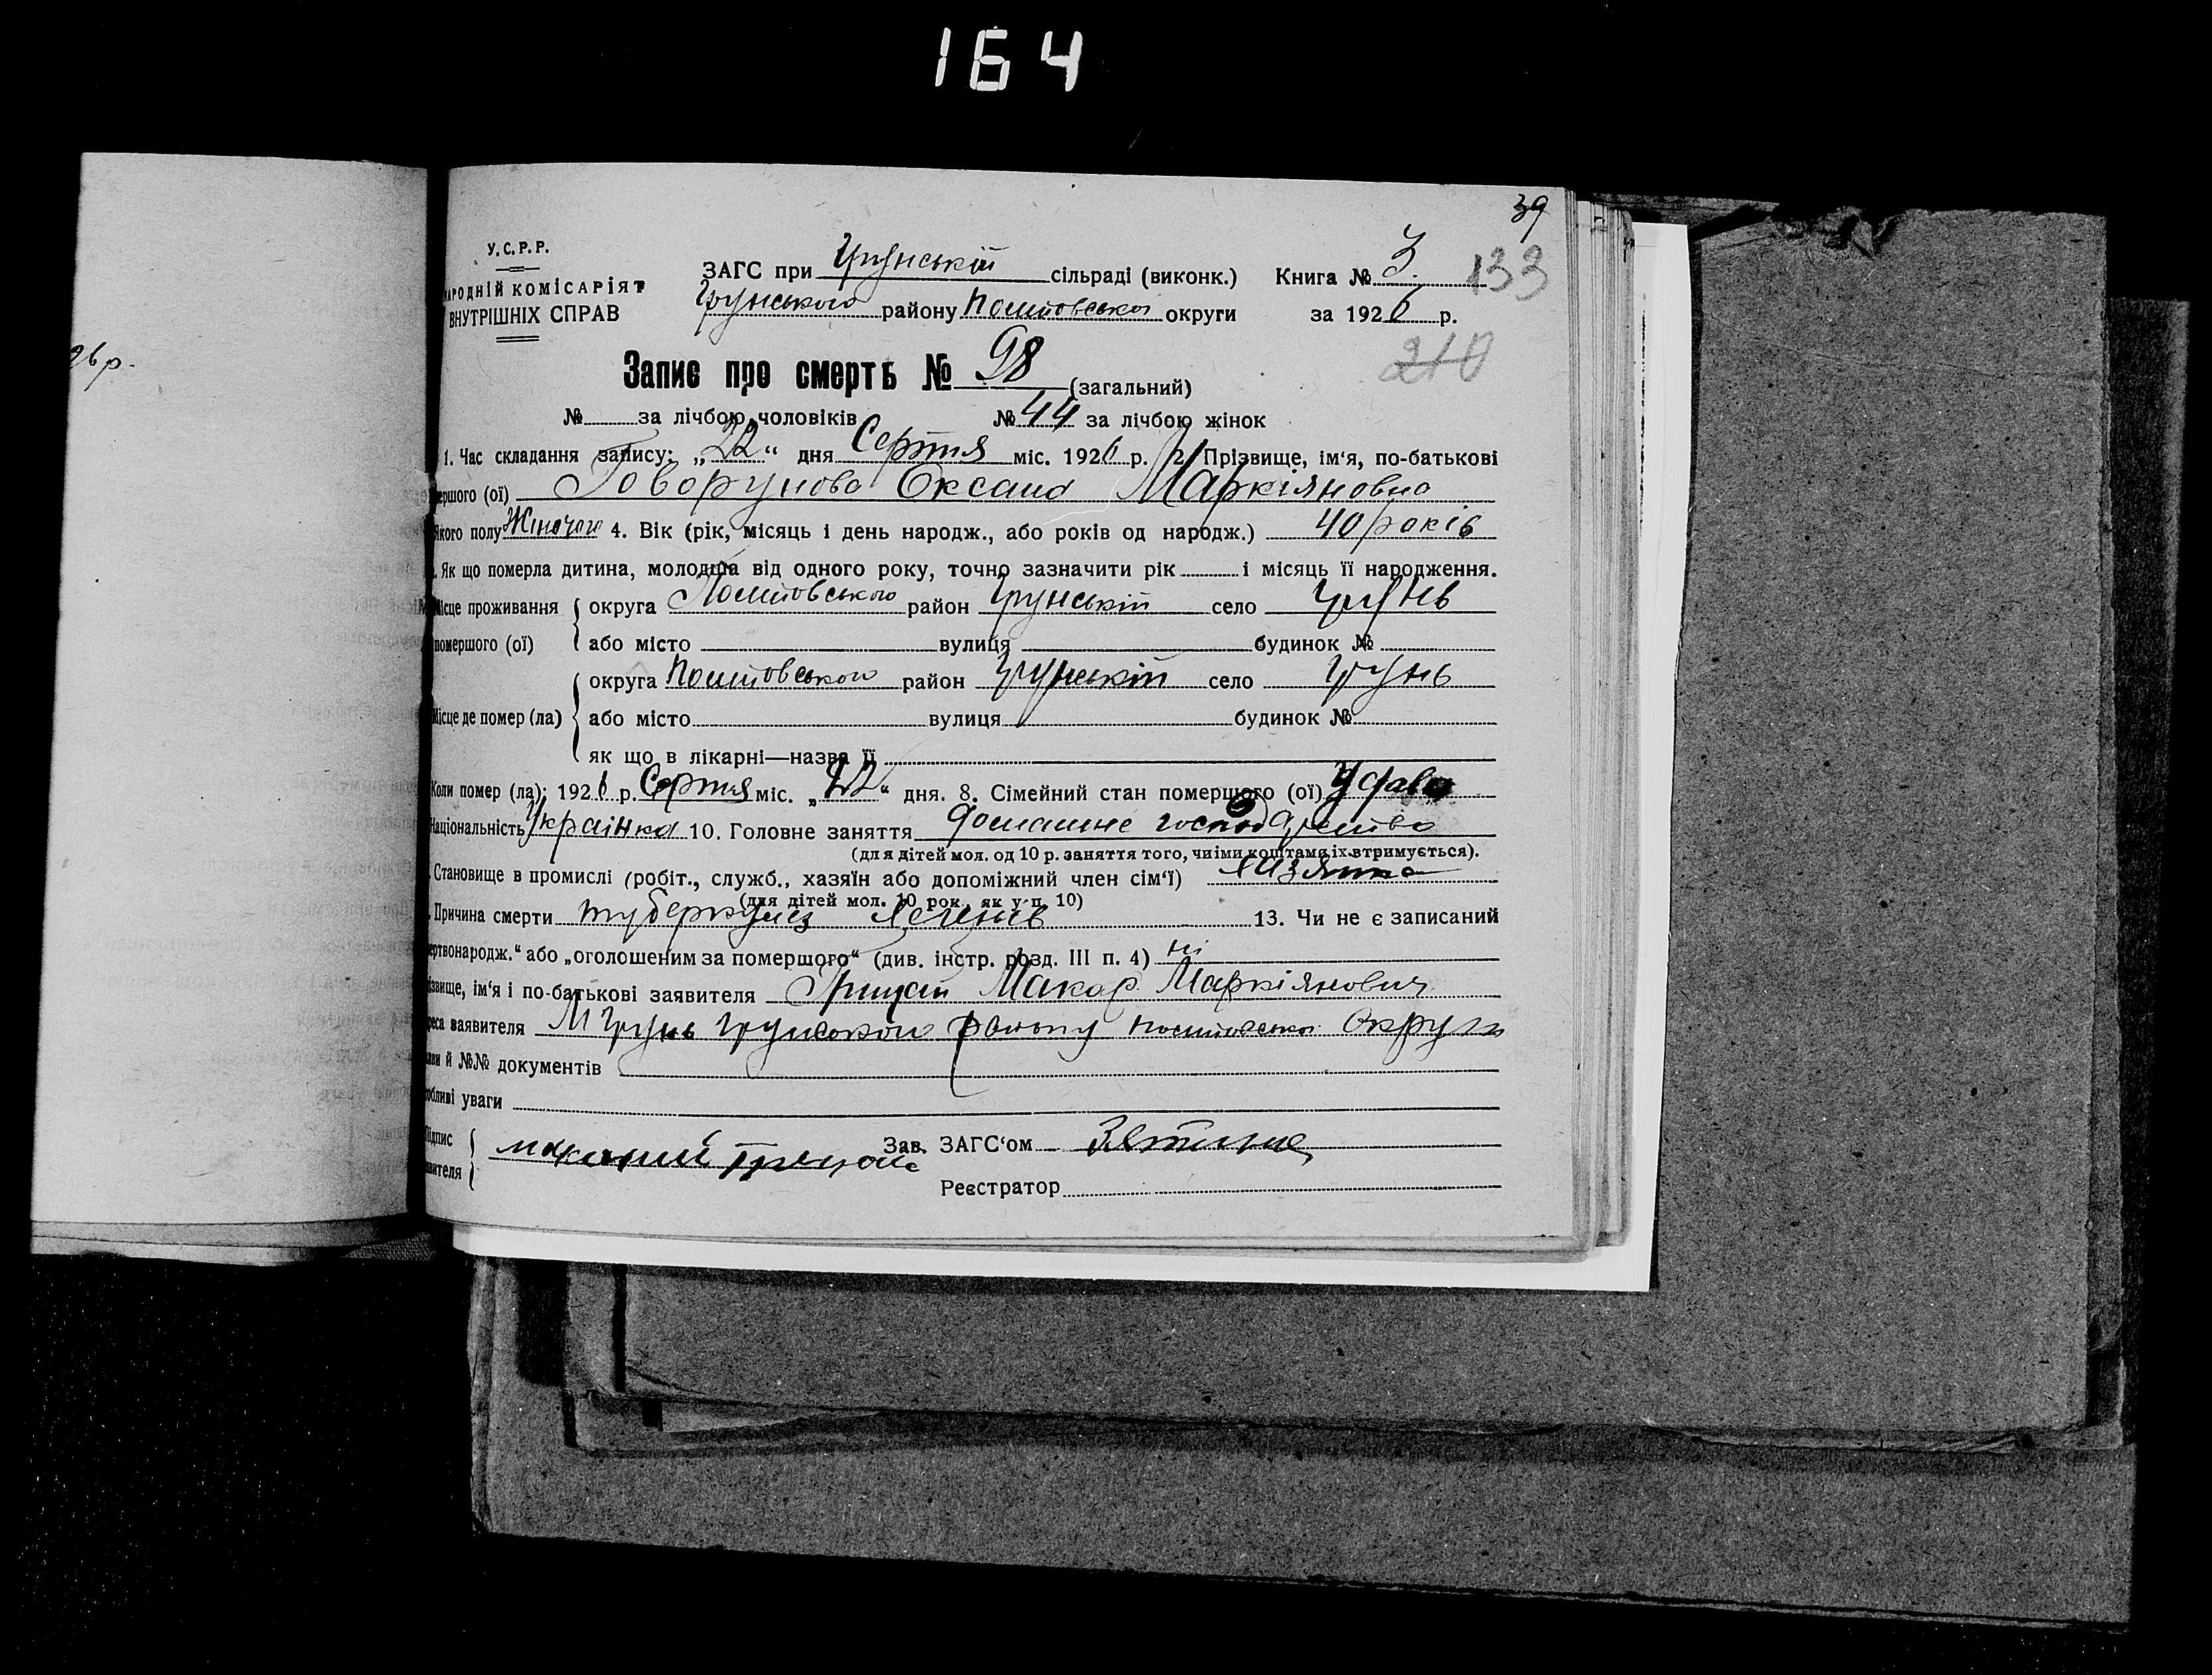 164
39
У.С.Р.Р.
АРОДНІЙ КОМІСАРІЯТ
ВНУТРІШНІХ СПРАВ
ЗАГС при Грунській сільраді (виконк.) Книга № 3. 133
Грунського району Полтовської округи за 1926 р.
26 р.
210
Запис про смерть № 98 (загальний)
№ за лічбою чоловіків № 44 за лічбою жінок
1. Час складання запису: „22“ дня Серпня міс. 1926 р. 2. Прізвище, ім‘я, по-батькові
ершого (ої) Говорунова Оксана Маркіяновна
Якого полу Жіночого 4. Вік (рік, місяць і день народж., або років од народж.) 40 років
. Як що померла дитина, молодша від одного року, точно зазначити рік і місяць її народження.
Місце проживання округа Полтовського район Грунській село Грунь
помершого (ої) або місто вулиця будинок №
округа Полтовського район Грунській село Грунь
Місце де помер (ла) або місто вулиця будинок №
як що в лікарні—назва її
Коли помер (ла): 1926 р. Серпня міс. „22“ дня. 8. Сімейний стан помершого (ої) Удава
Національність Українка 10. Головне заняття Домашнє господарство
(для дітей мол. од 10 р. заняття того, чиїми коштами їх втримується).
. Становище в промислі (робіт., служб., хазяїн або допоміжний член сім‘ї)
(для дітей мол. 10 рок. як у п. 10)
. Причина смерти туберкулез легенів 13. Чи не є записаний
ертвонародж.“ або „оголошеним за помершого“ (див. інстр. розд. III п. 4) ні
ізвище, ім‘я і по-батькові заявителя Грицай Макар Маркіянович
реса заявителя М Грунь Грунского району Полтовської Округи
ави й №№ документів
обливі уваги
Підпис
явителя Грицай
Зав. ЗАГС‘ом
Реєстратор